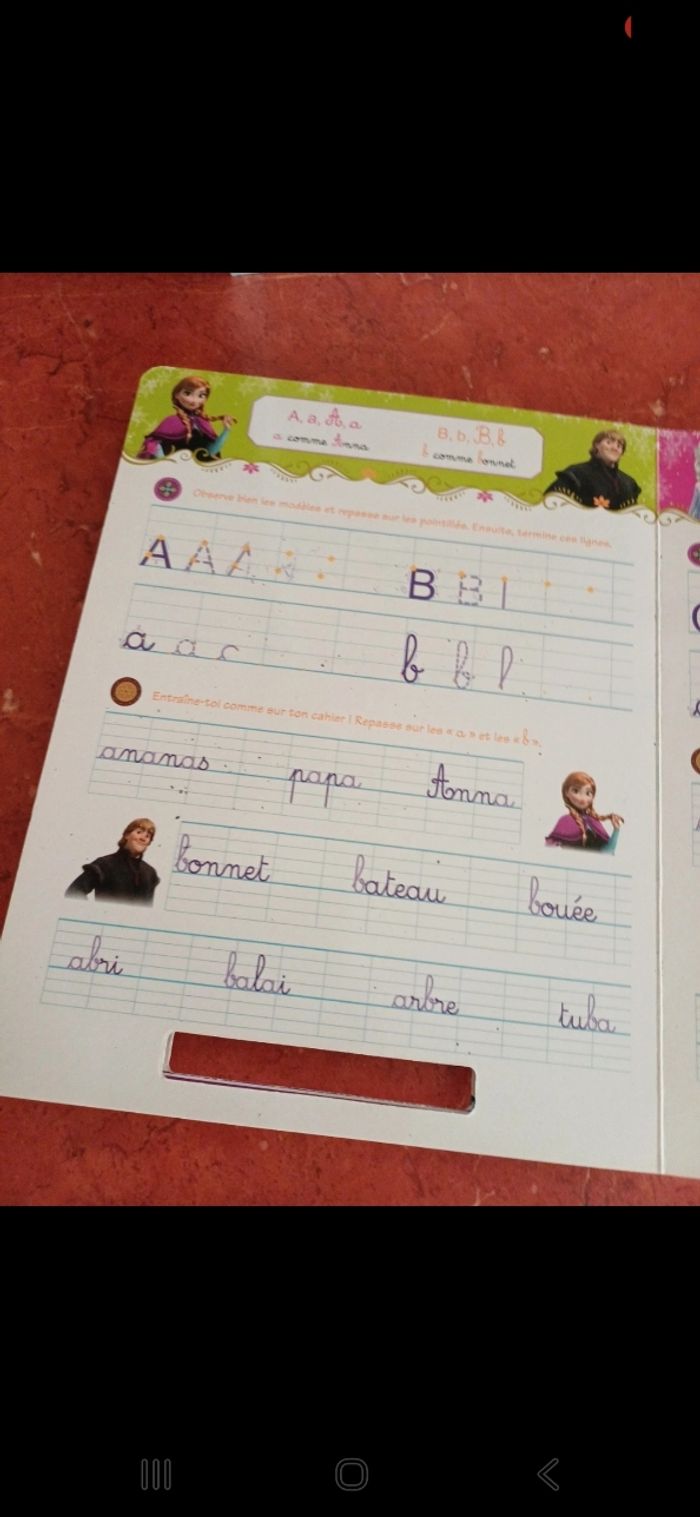 A, a, A, a
a comme Anna
B, b, B, b
b comme bonnet
Observe bien les modèles et repasse sur les pointillés. Ensuite, termine ces lignes.
A A A B B
a a b b
Entraîne-toi comme sur ton cahier ! Repasse sur les « a » et les « b ».
ananas papa Anna
bonnet bateau bouée
abri balai arbre tuba